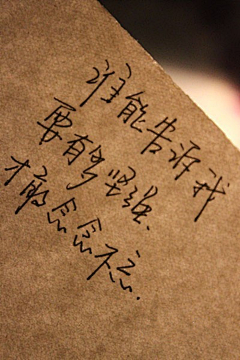 谁能告诉我
要有多坚强
才能念念不忘.